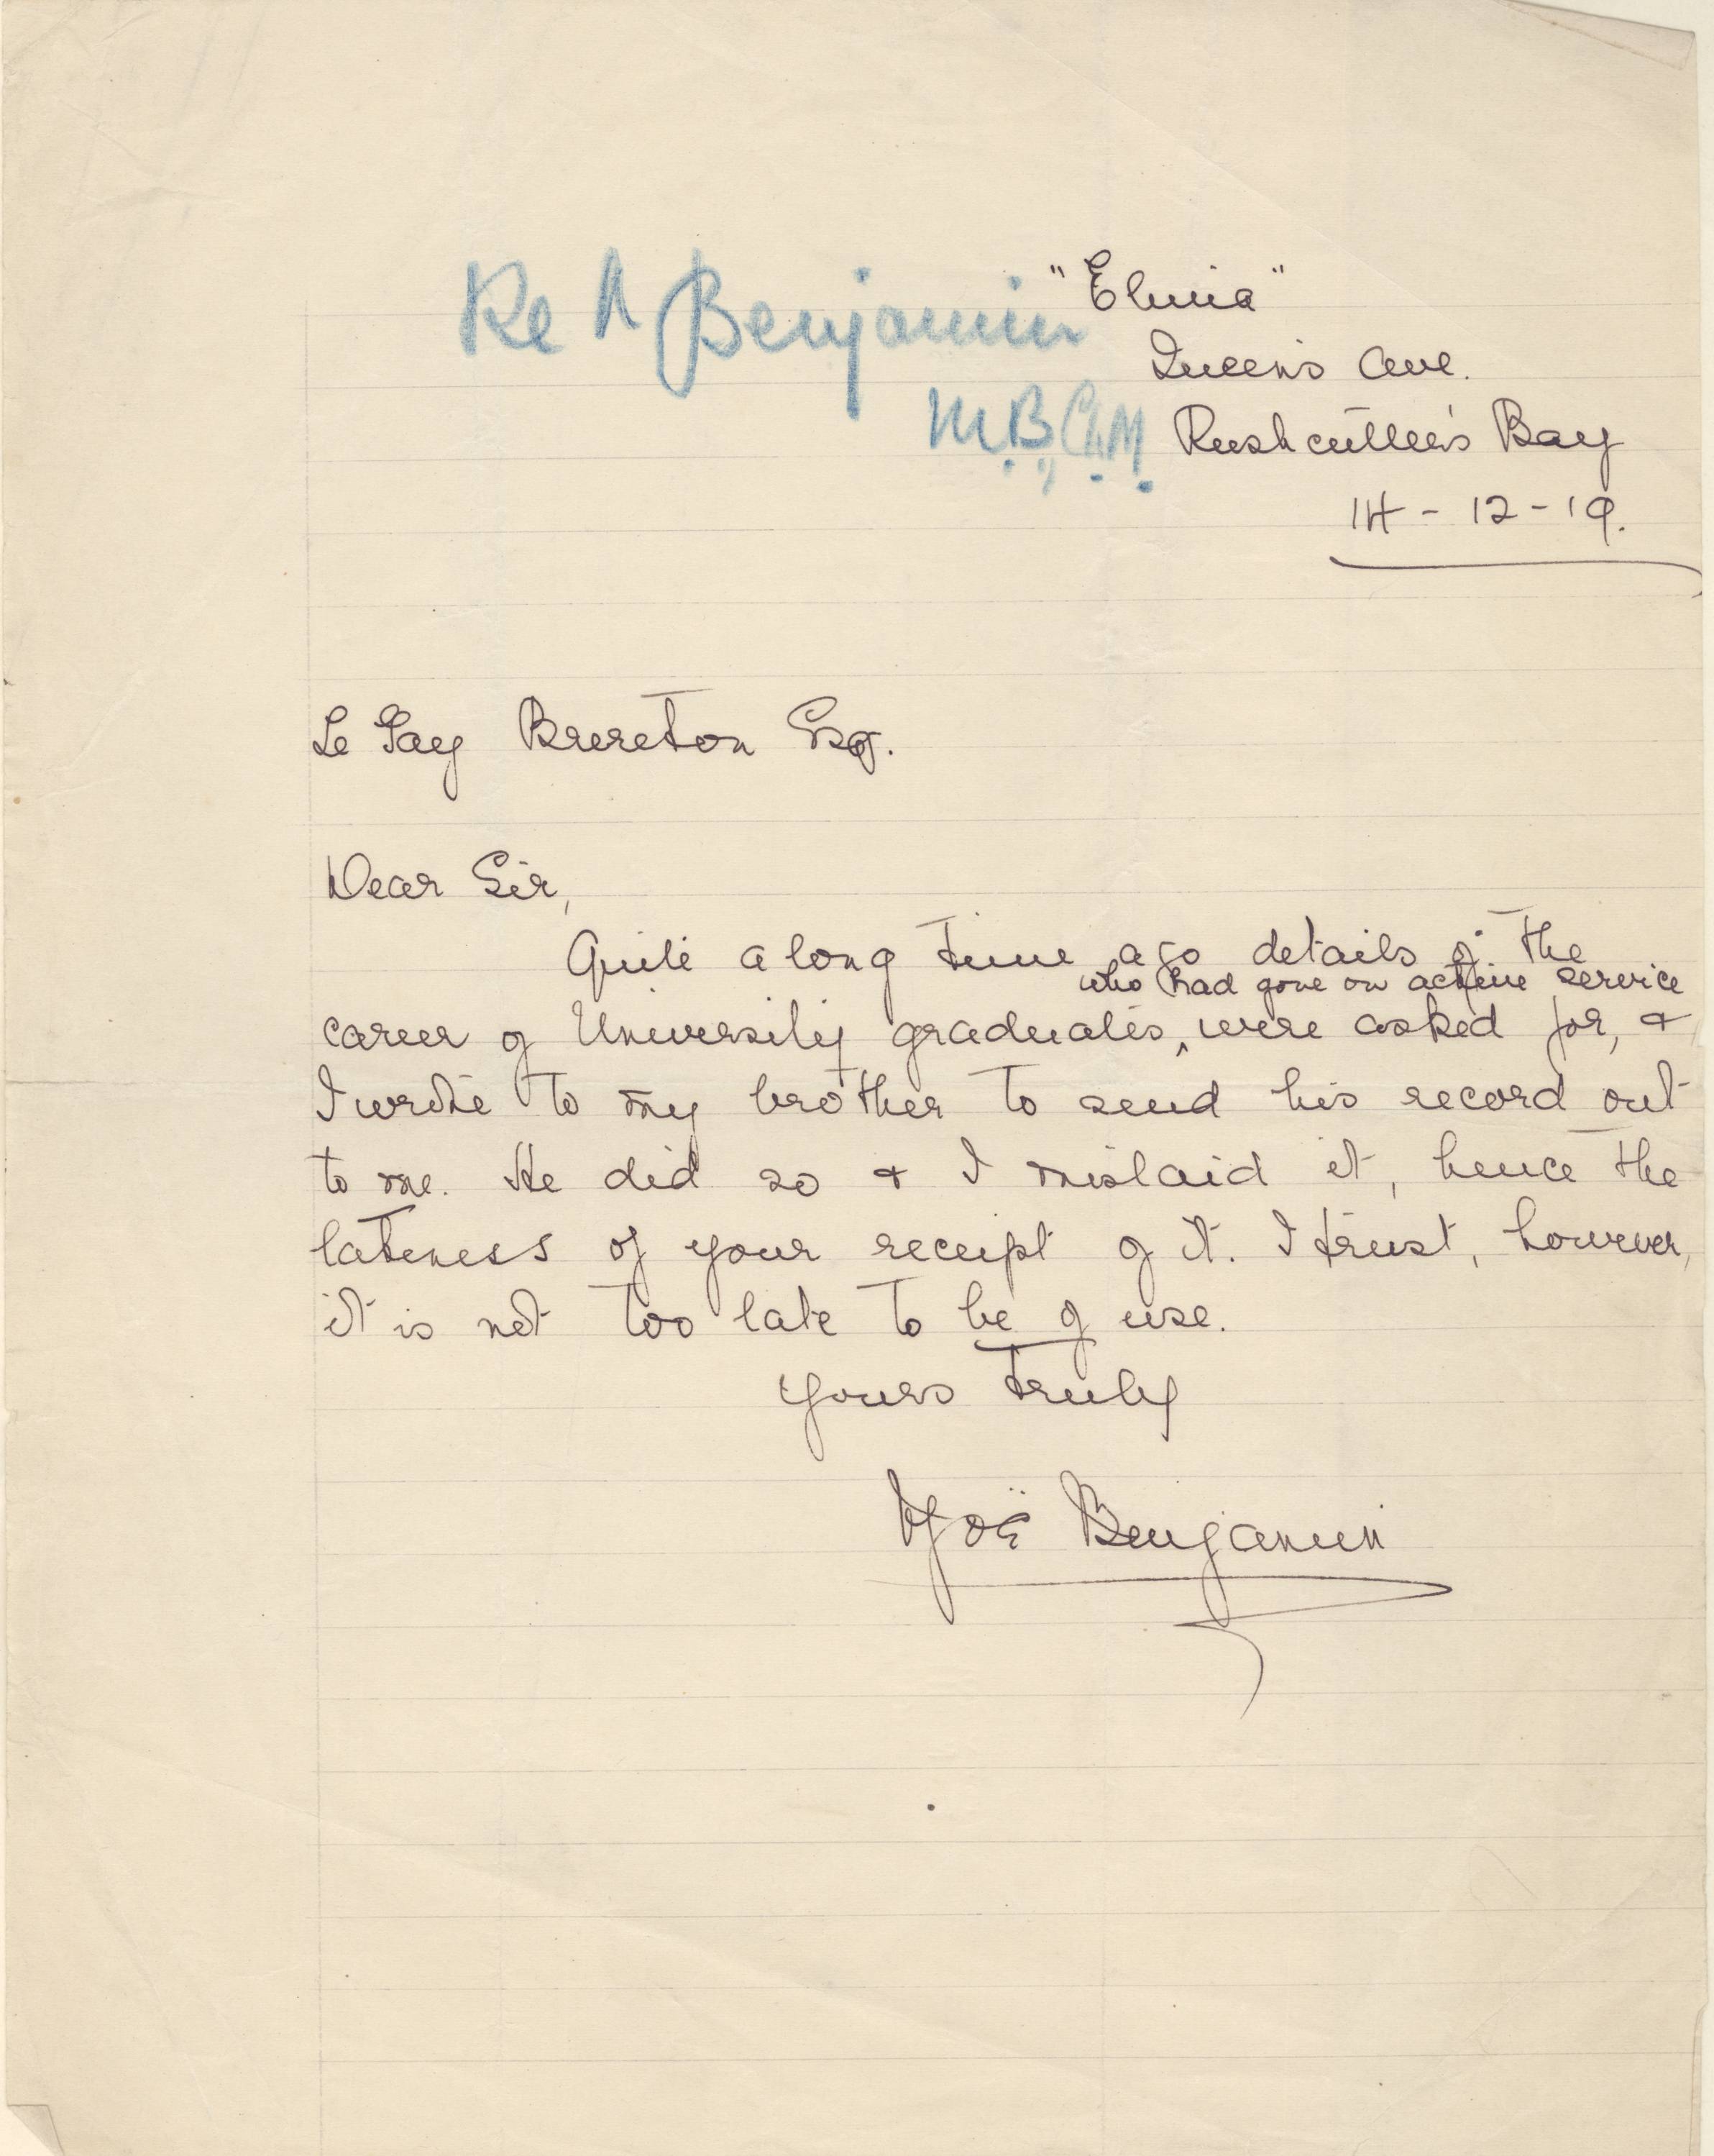 Re A Benjamin
M.B., Ch.M.
"Elmia"
Queen's Ave.
Rushcutter's Bay
14-12-19.
Le Gay Brereton Esq.
Dear Sir,
Quite a long time ago details of the
who had gone on active service
career of University graduates, were asked for, &
I wrote to my brother to send his record out
to me. He did so & I mislaid it, hence the
lateness of your receipt of it. I trust, however,
it is not too late to be of use.
Yours truly
Benjamin